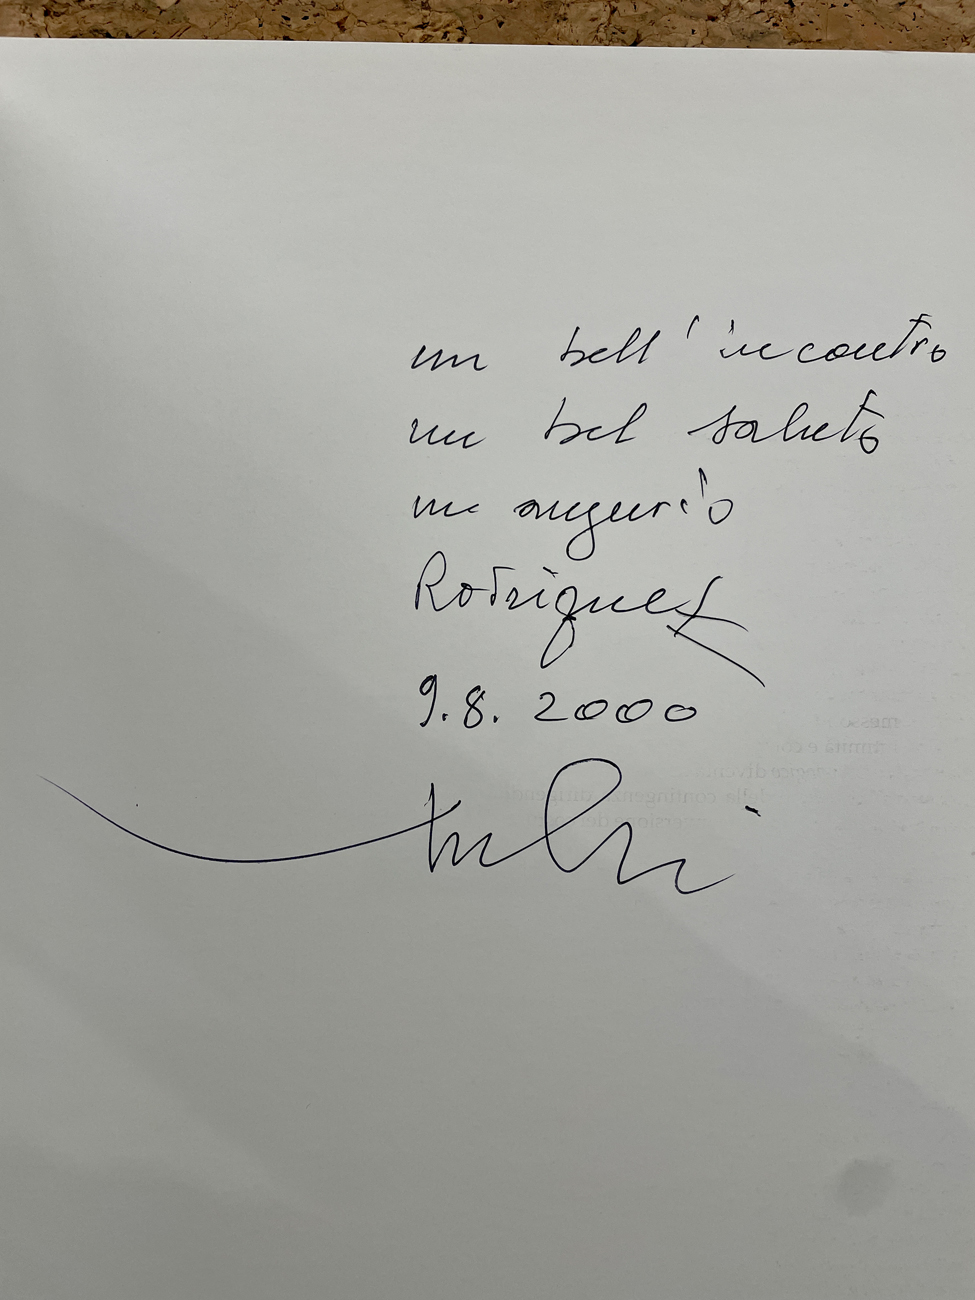 un bell'incontro
un bel saluto
un augurio
Rodriguez
9.8.2000